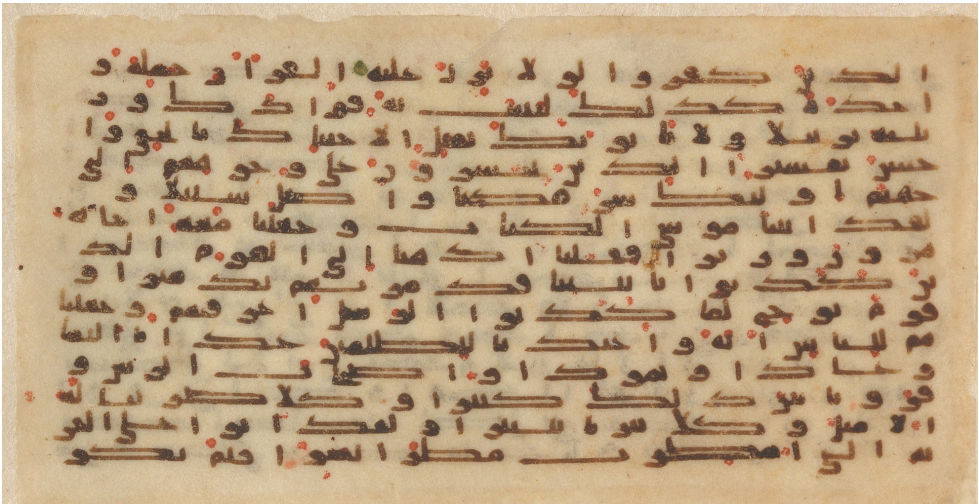 ا لذين كفروا لولا نزل عليه القرا ن جملة و
ا حدة كذلك لنثبت به فوا دك ور
تلنه ترتيلا ولا يا تونك بمثل الا جئنك با لحق وا
حسن تفسيرا الذين يحشرون على وجوههم الى
جهنم ا ولئك شر مكنا وا ضل سبيلا و
لقد اتينا موسى ا لكتب وجعلنا معه ا خاه
هرون وزيرا فقلنا ا ذهبا ا لى ا لقوم ا لذ
ين كذبوا با يتنا فدمرنهم تدميرا و
قوم نوح لما كذبوا ا لرسل ا غرقنهم وجعلنا
هم للناس ا ية وا عتدنا للظلمين عذا با ا ليما
وعا دا وثمودا وا صحب ا لرس و
قرونا بين ذلك كثيرا وكلا ضربنا له
ا لا مثل وكلا تبرنا تتبيرا ولقد ا توا على ا لقر
ية ا لتى ا مطرت مطر ا لسو ا فلم يكو